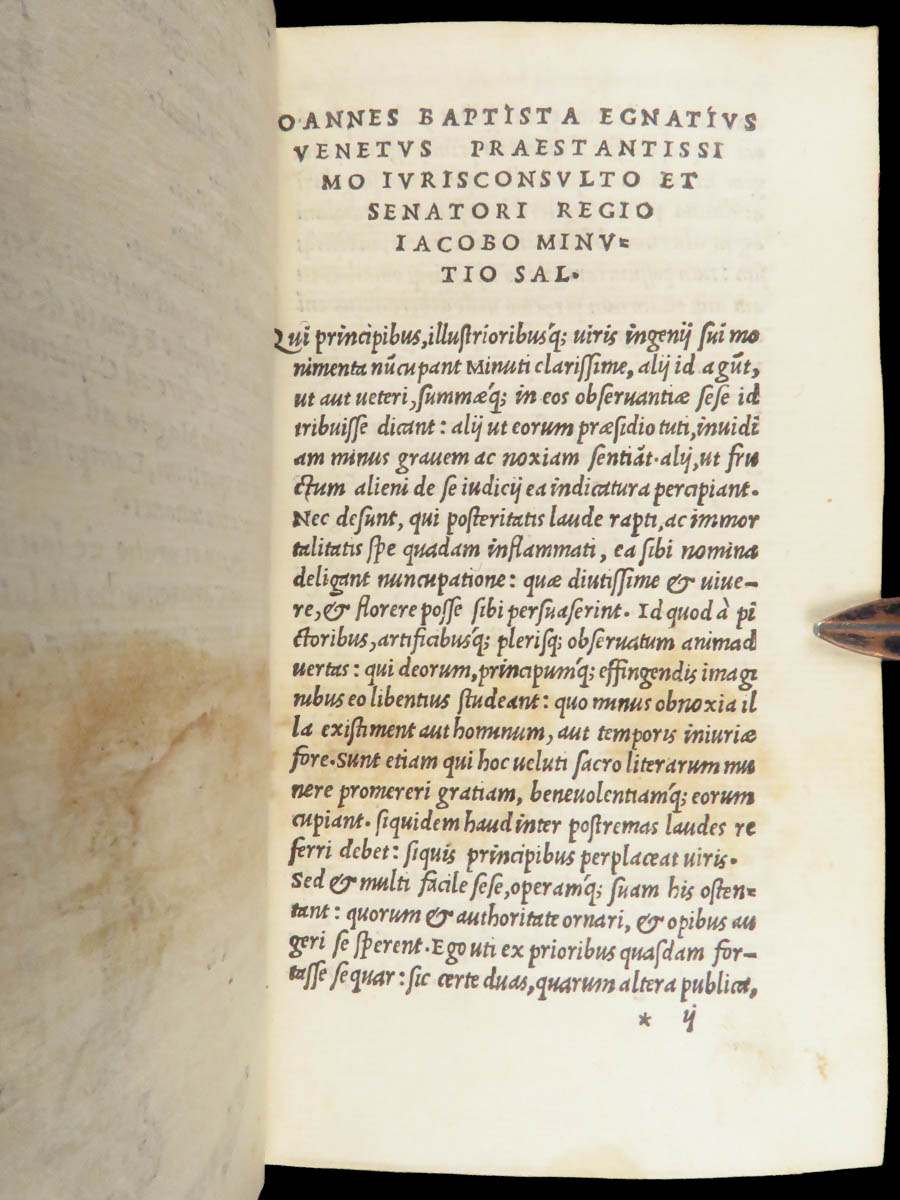 OANNES BAPTISTA EGNATIVS
VENETVS PRAESTANTISSI
MO IVRISCONSVLTO ET
SENATORI REGIO
IACOBO MINV=
TIO SAL.
Qui principibus, illustrioribusq; uiris ingenij sui mo
numenta nũcupant Minuti clarissime, alij id agũt,
ut aut ueteri, summæq; in eos obseruantiæ sese id
tribuisse dicant: alij ut eorum præsidio tuti, inuidi
am minus grauem ac noxiam sentiãt. alij, ut fru
ctum alieni de se iudicij ea indicatura percipiant.
Nec desunt, qui posteritatis laude rapti, ac immor
talitatis spe quadam inflammati, ea sibi nomina
deligant nuncupatione: quæ diutissime & uiue-
re, & florere posse sibi persuaserint. Id quod à pi
ctoribus, artificibusq; plerisq; obseruatum animad
uertas: qui deorum, principumq; effingendis imagi
nibus eo libentius studeant: quo minus obnoxia il
la existiment aut hominum, aut temporis iniuriæ
fore. Sunt etiam qui hoc ueluti sacro literarum mu
nere promereri gratiam, beneuolentiamq; eorum
cupiant. siquidem haud inter postremas laudes re
ferri debet: siquis principibus perplaceat uiris.
Sed & multi facile sese, operamq; suam his osten=
tant: quorum & authoritate ornari, & opibus au
geri se sperent. Ego uti ex prioribus quasdam for-
tasse sequar: sic certe duas, quarum altera publica,
* ij